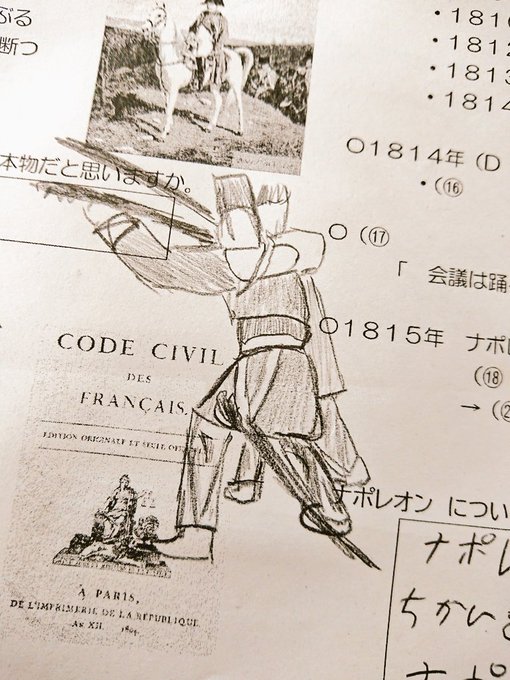 ぶる
断つ
・181
・1812
・1813
・1814
本物だと思いますか。
〇1814年（D
・（⑯
〇（⑰
「 会議は踊
〇1815年 ナポレ
（⑱
→（②
CODE CIVIL
DES
FRANÇAIS.
EDITION ORIGINALE ET SEULE OF
À PARIS,
DE L'IMPRIMERIE DE LA RÉPUBLIQUE
AN XII 1804.
ナポレオン につい
ナポレ
ちかい
ナポ